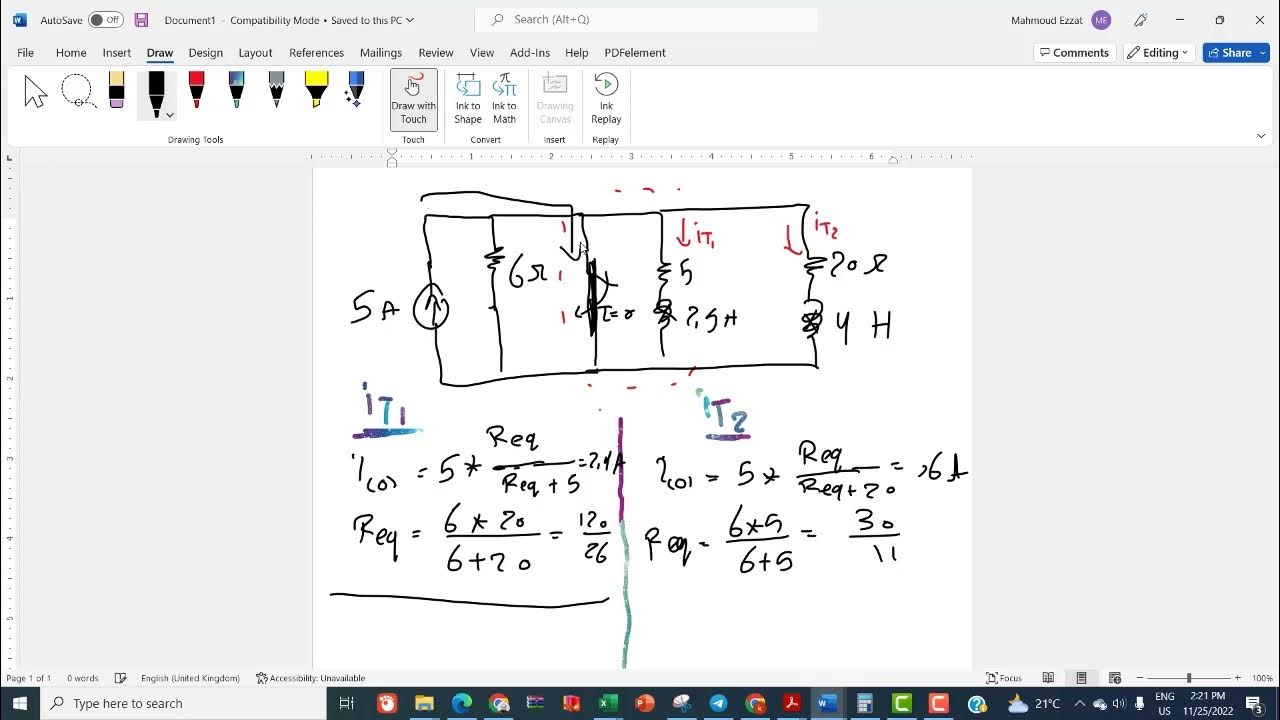 AutoSave Off Document1 - Compatibility Mode • Saved to this PC Search (Alt+Q) Mahmoud Ezzat ME
File Home Insert Draw Design Layout References Mailings Review View Add-Ins Help PDFelement Comments Editing Share
Draw with Touch Ink to Shape Ink to Math Drawing Canvas Ink Replay
Drawing Tools Touch Convert Insert Replay
1 2 3 4 5 6
iT1 iT2
6Ω 5 20 Ω
5 A T=0 2,5 H 4 H
iT1 iT2
i(0) = 5 * Req / Req + 5 = 2,4A
i(0) = 5 * Req / Req + 20 = ,6 A
Req = 6 * 20 / 6 + 20 = 120 / 26
Req = 6*5 / 6+5 = 30 / 11
Page 1 of 1 0 words English (United Kingdom) Accessibility: Unavailable Focus 100%
Type here to search 21°C ENG US 2:21 PM 11/25/2022